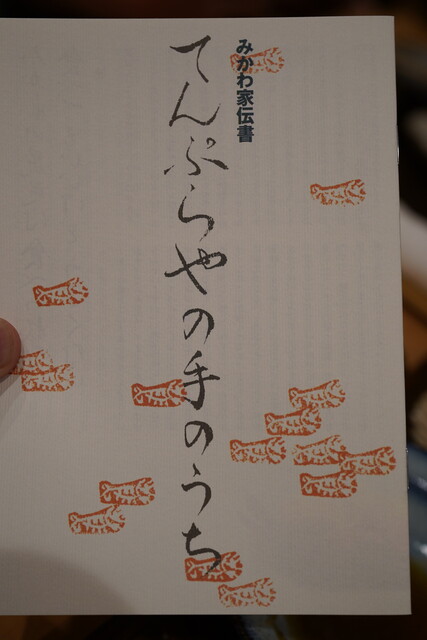 みかわ家伝書
てんぷらやの手のうち